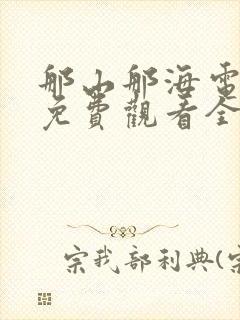 那山那海電
免費觀看全
宗我部利典(宗